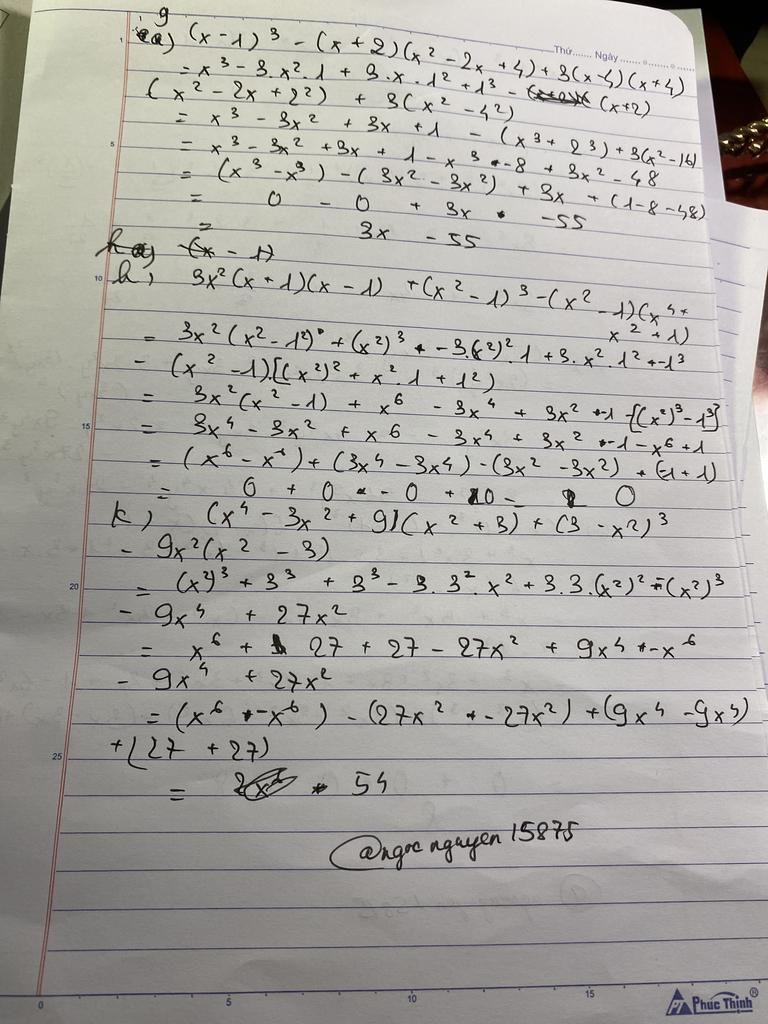 g
a) (x-1)³ - (x+2)(x² - 2x + 4) + 3(x-4)(x+4)
Thứ....... Ngày
= x³ - 3.x².1 + 3.x.1² + 1³ - (x+2)
(x² - 2x + 2²) + 3(x² - 4²)
= x³ - 3x² + 3x + 1 - (x³ + 2³) + 3(x² - 16)
= x³ - 3x² + 3x + 1 - x³ - 8 + 3x² - 48
= (x³ - x³) - (3x² - 3x²) + 3x + (1 - 8 - 48)
= 0 - 0 + 3x - 55
= 3x - 55
(x - 1)
h, 3x²(x+1)(x-1) + (x² - 1)³ - (x² - 1)(x⁴ +
x² + 1)
= 3x²(x² - 1²) + (x²)³ - 3.(x²)².1 + 3.x².1² - 1³
- (x² - 1).[(x²)² + x².1 + 1²)
= 3x²(x² - 1) + x⁶ - 3x⁴ + 3x² - 1 - [(x²)³ - 1³]
= 3x⁴ - 3x² + x⁶ - 3x⁴ + 3x² - 1 - x⁶ + 1
= (x⁶ - x⁶) + (3x⁴ - 3x⁴) - (3x² - 3x²) + (-1 + 1)
= 0 + 0 - 0 + 0 = 0
k) (x⁴ - 3x² + 9)(x² + 3) + (3 - x²)³
- 9x²(x² - 3)
= (x²)³ + 3³ + 3³ - 3.3².x² + 3.3.(x²)² - (x²)³
- 9x⁴ + 27x²
= x⁶ + 27 + 27 - 27x² + 9x⁴ - x⁶
- 9x⁴ + 27x²
= (x⁶ - x⁶) - (27x² - 27x²) + (9x⁴ - 9x⁴)
+ (27 + 27)
= 54
@ngoc nguyen 15875
5
10
15
20
25
0 5 10 15
Phúc Thịnh®